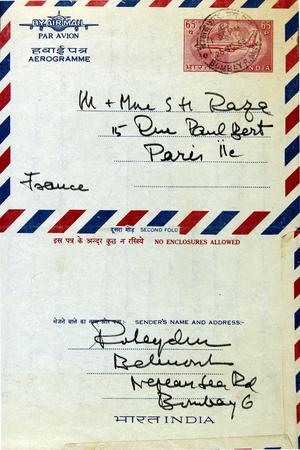 BY AIR MAIL
PAR AVION
हवाई पत्र
AEROGRAMME
65
65
BOMBAY
भारत INDIA
M + Mme S H Raza
15 Rue Paul Bert
Paris 11e
France
दूसरा मोड़ SECOND FOLD
इस पत्र के अन्दर कुछ न रखिये NO ENCLOSURES ALLOWED
भेजने वाले का नाम और पता:- SENDER'S NAME AND ADDRESS:-
Belmont
Nepean Sea Rd
Bombay 6
भारत INDIA